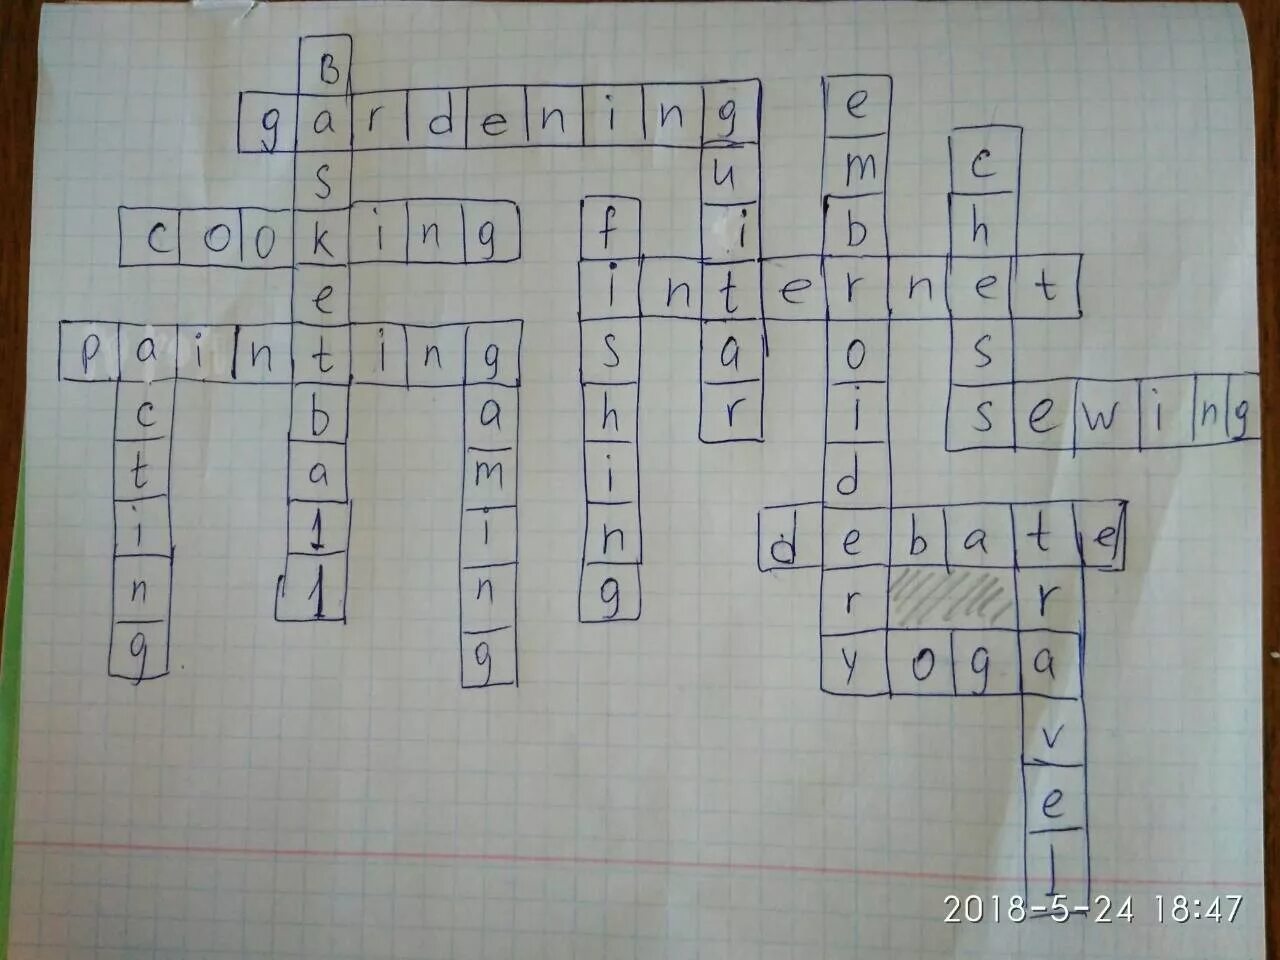 Basketball
gardening
guitar
embroidery
chess
cooking
fishing
internet
painting
acting
gaming
sewing
debate
travel
yoga
2018-5-24 18:47